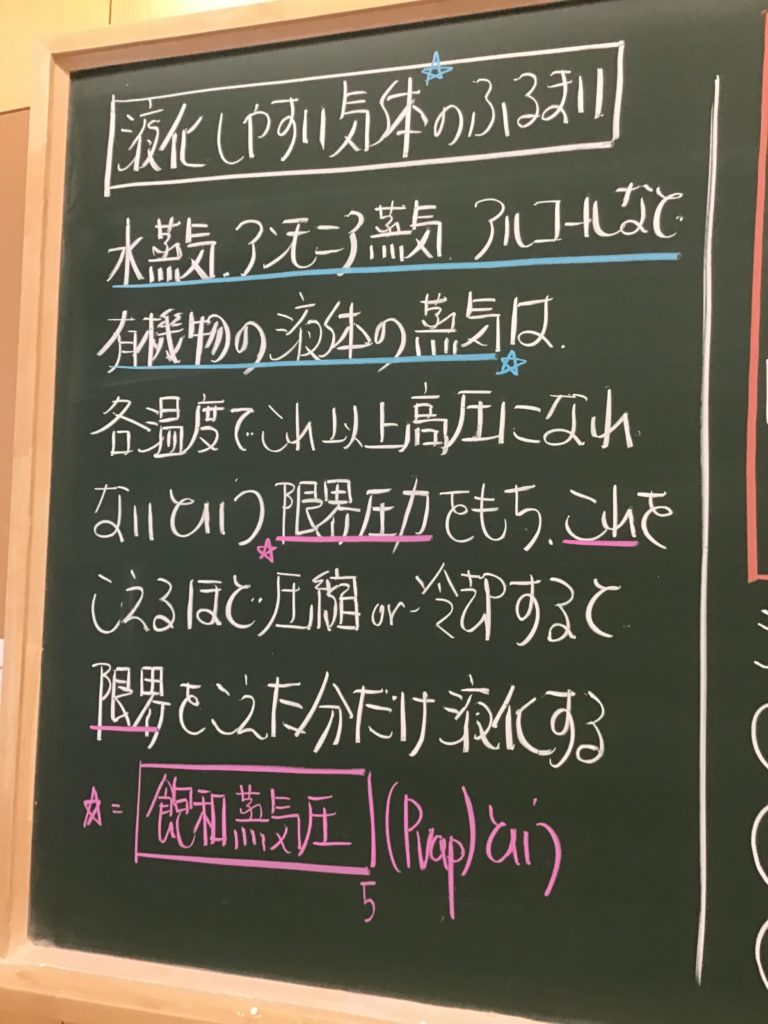 液化しやすい気体☆のふるまい
水蒸気、アンモニア蒸気、アルコールなど
有機物の液体の蒸気☆は、
各温度でこれ以上高圧になれ
ないという☆限界圧力をもち、これを
こえるほど圧縮or冷却すると
限界をこえた分だけ液化する
☆=飽和蒸気圧(Pvap)という
5